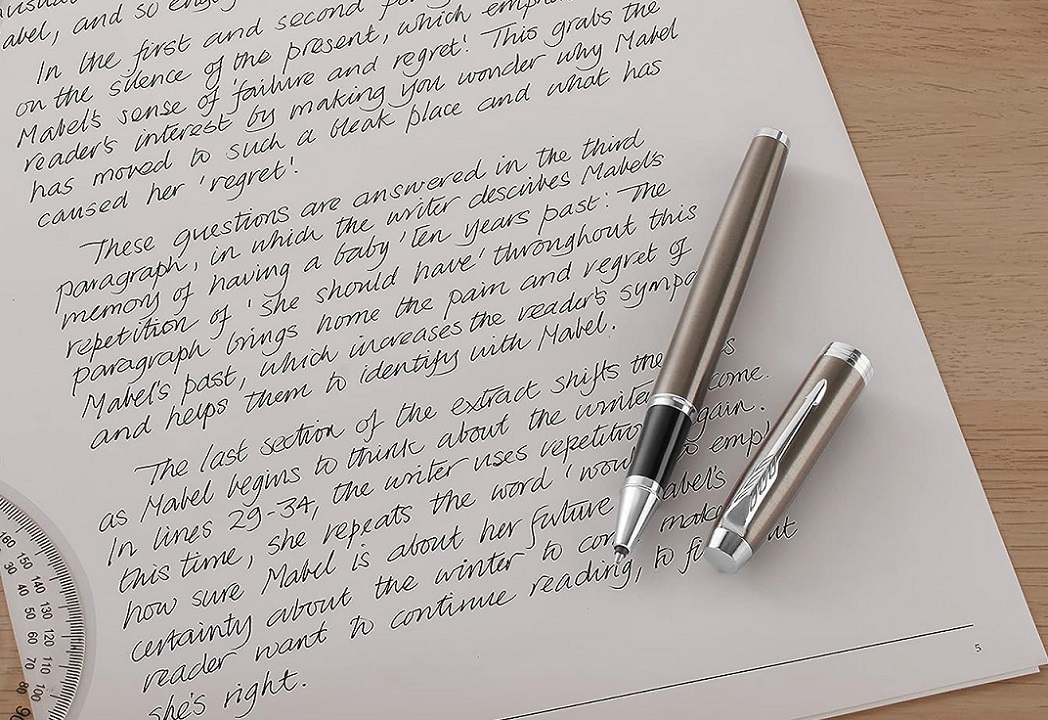 abel, and so
In the first and second
on the silence of the present, which
Mabel's sense of 'failure and regret'. This grabs the
reader's interest by making you wonder why Mabel
has moved to such a bleak place and what has
caused her 'regret'.
These questions are answered in the third
paragraph, in which the writer describes Mabel's
memory of having a baby 'ten years past'. The
repetition of 'she should have' throughout this
paragraph brings home the pain and regret of
Mabel's past, which increases the reader's sympa
and helps them to identify with Mabel.
The last section of the extract shifts the
as Mabel begins to think about the winter come.
In lines 29-34, the writer uses repetition again.
this time, she repeats the word 'would' to emp
how sure Mabel is about her future Mabel's
certainty about the winter to make
reader want to continue reading, to out
she's right.
5
160
150
140
130
120
110
100
90
30
40
50
60
70
80